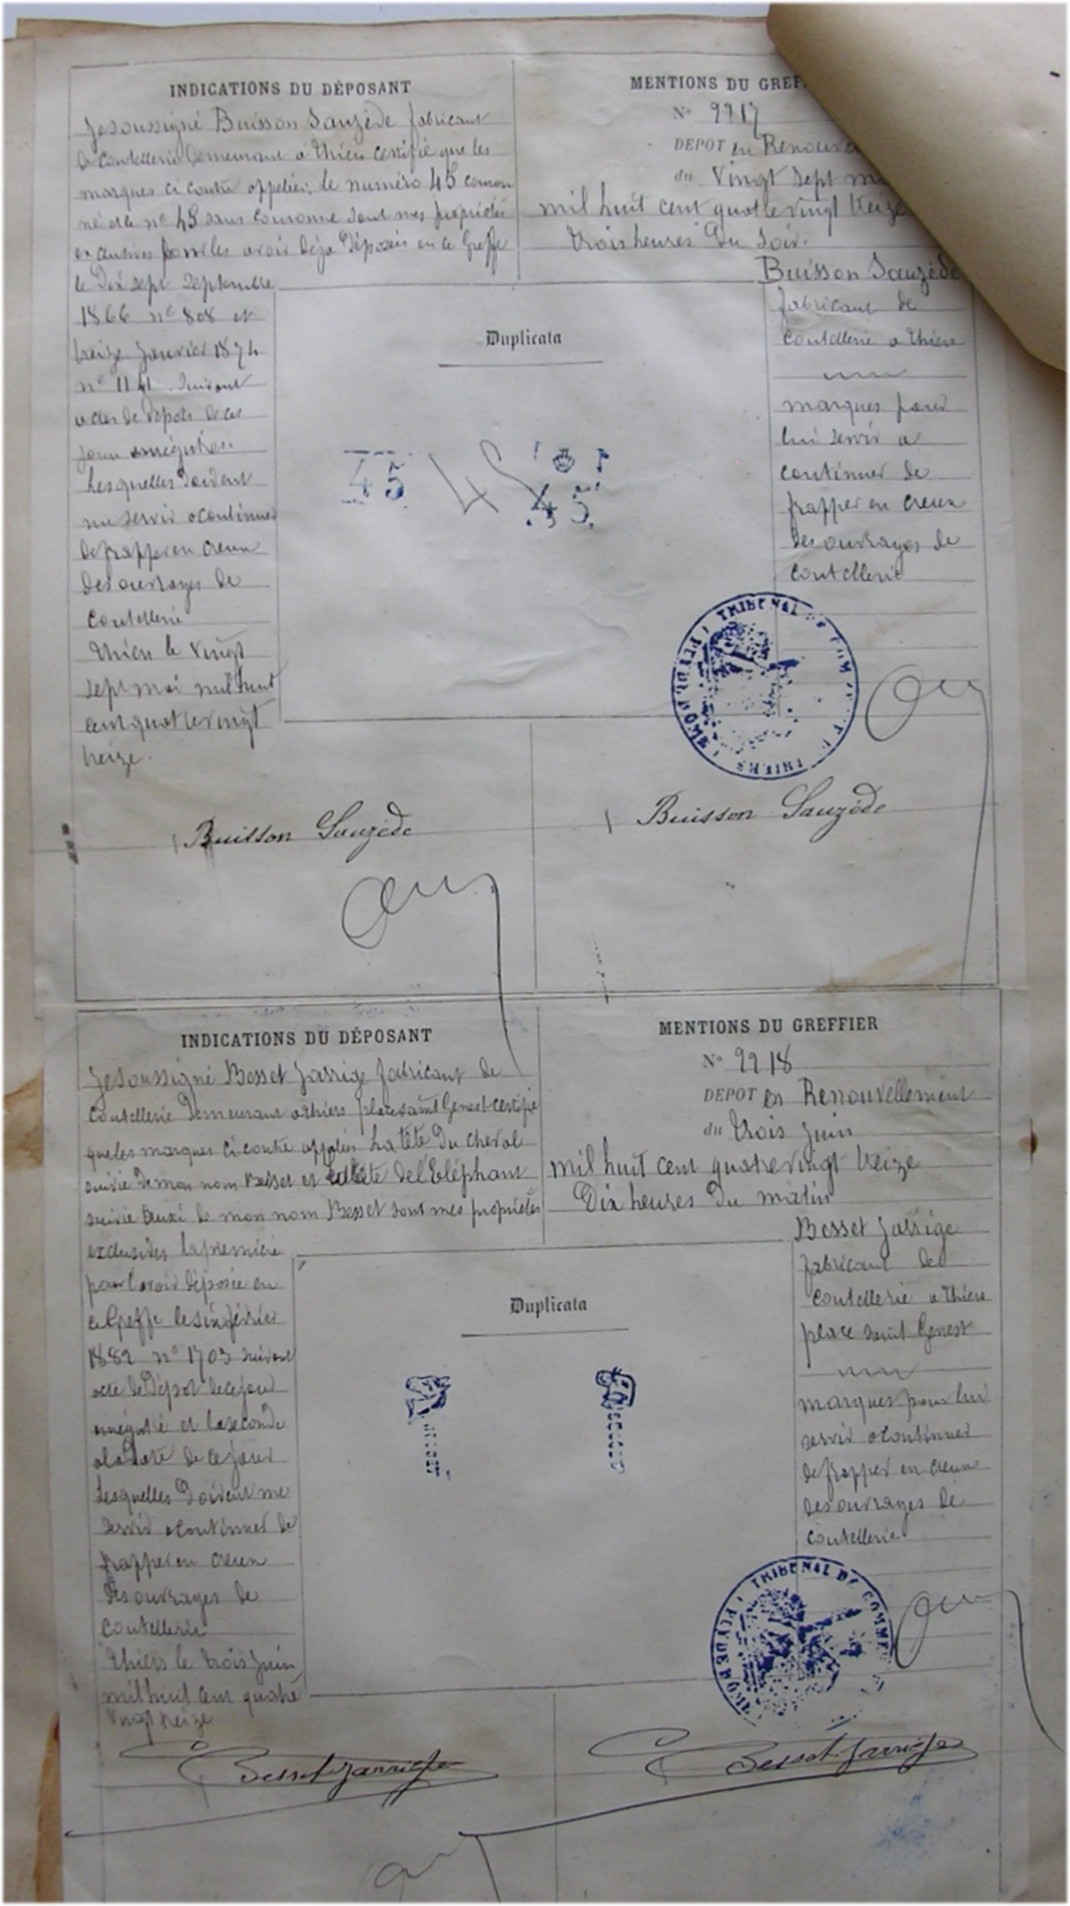 INDICATIONS DU DÉPOSANT
Je soussigné Buisson Sauzède fabricant
de Coutellerie Demeurant a Thiers certifie que les
marques ci contre appelées le numéro 45 couron
né et le no 45 sans Couronne sont mes propriétés
exclusives pour les avoir déja Déposées en ce Greffe
le Dix sept Septembre
1866 no 808 et
treize Janvier 1874
no 1141 Suivant
actes de Dépots de ces
jours enrégistrés.
Lesquelles doivent
me servir a continuer
de frapper en creux
des ouvrages de
Coutellerie
Thiers le Vingt
sept mai mil huit
cent quatre vingt
treize.
MENTIONS DU GREF
No 9917
DEPOT en Renouve
du Vingt Sept ma
mil huit cent quatre vingt treize
trois heures Du Soir.
Buisson Sauzède
fabricant de
Coutellerie a Thiers
marques pour
lui servir a
continuer de
frapper en creux
des ouvrages de
Coutellerie
Duplicata
45 45 45
TRIBUNAL DE COMMERCE THIERS (PUY DE DOME)
Buisson Sauzède
Buisson Sauzède
INDICATIONS DU DÉPOSANT
Je soussigné Besset Jarrige fabricant de
Coutellerie Demeurant a Thiers place saint Genest certifie
que les marques ci contre appelées La tête Du cheval
suivie De mon nom Besset et la tête de l'Eléphant
suivie aussi de mon nom Besset sont mes propriétés
exclusives la première
pour l'avoir déposée en
ce Greffe le six février
1882 no 1703 suivant
acte de Dépot de ce jour
enrégistré et la seconde
a la date de ce jour
Lesquelles Doivent me
servir a continuer de
frapper en creux
des ouvrages de
Coutellerie
Thiers le trois Juin
mil huit cent quatre
vingt treize
MENTIONS DU GREFFIER
No 9918
DEPOT en Renouvellement
du trois Juin
mil huit cent quatre vingt treize
Dix heures Du matin
Besset Jarrige
fabricant de
Coutellerie a Thiers
place saint Genest
marques pour lui
servir a continuer
de frapper en creux
des ouvrages de
Coutellerie
Duplicata
BESSET BESSET
TRIBUNAL DE COMMERCE (PUY DE DOME)
Besset-Jarrige
Besset-Jarrige